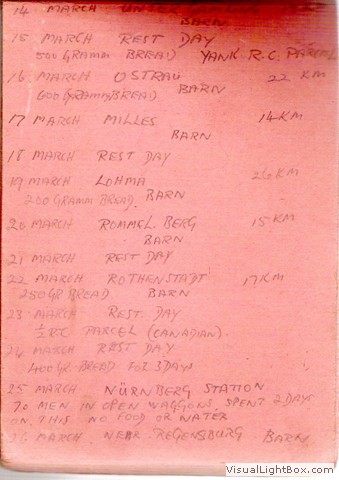 14 MARCH UNTER
BARN
15 MARCH REST DAY
500 GRAMM BREAD YANK R.C. PARCEL
16 MARCH OSTRAU 22 KM
600 GRAMM BREAD BARN
17 MARCH MILLES 14 KM
BARN
18 MARCH REST DAY
19 MARCH LOHMA 26 KM
200 GRAMM BREAD. BARN
20 MARCH ROMMEL BERG 15 KM
BARN
21 MARCH REST DAY
22 MARCH ROTHENSTADT 17 KM
250 GR BREAD BARN
23 MARCH REST. DAY
½ RCC PARCEL (CANADIAN)
24 MARCH REST DAY
400 GR BREAD FOR 3 DAYS
25 MARCH NÜRNBERG STATION
70 MEN IN OPEN WAGGONS. SPENT 2 DAYS
ON THIS NO FOOD OR WATER
26 MARCH NEAR REGENSBURG BARN
VisualLightBox.com